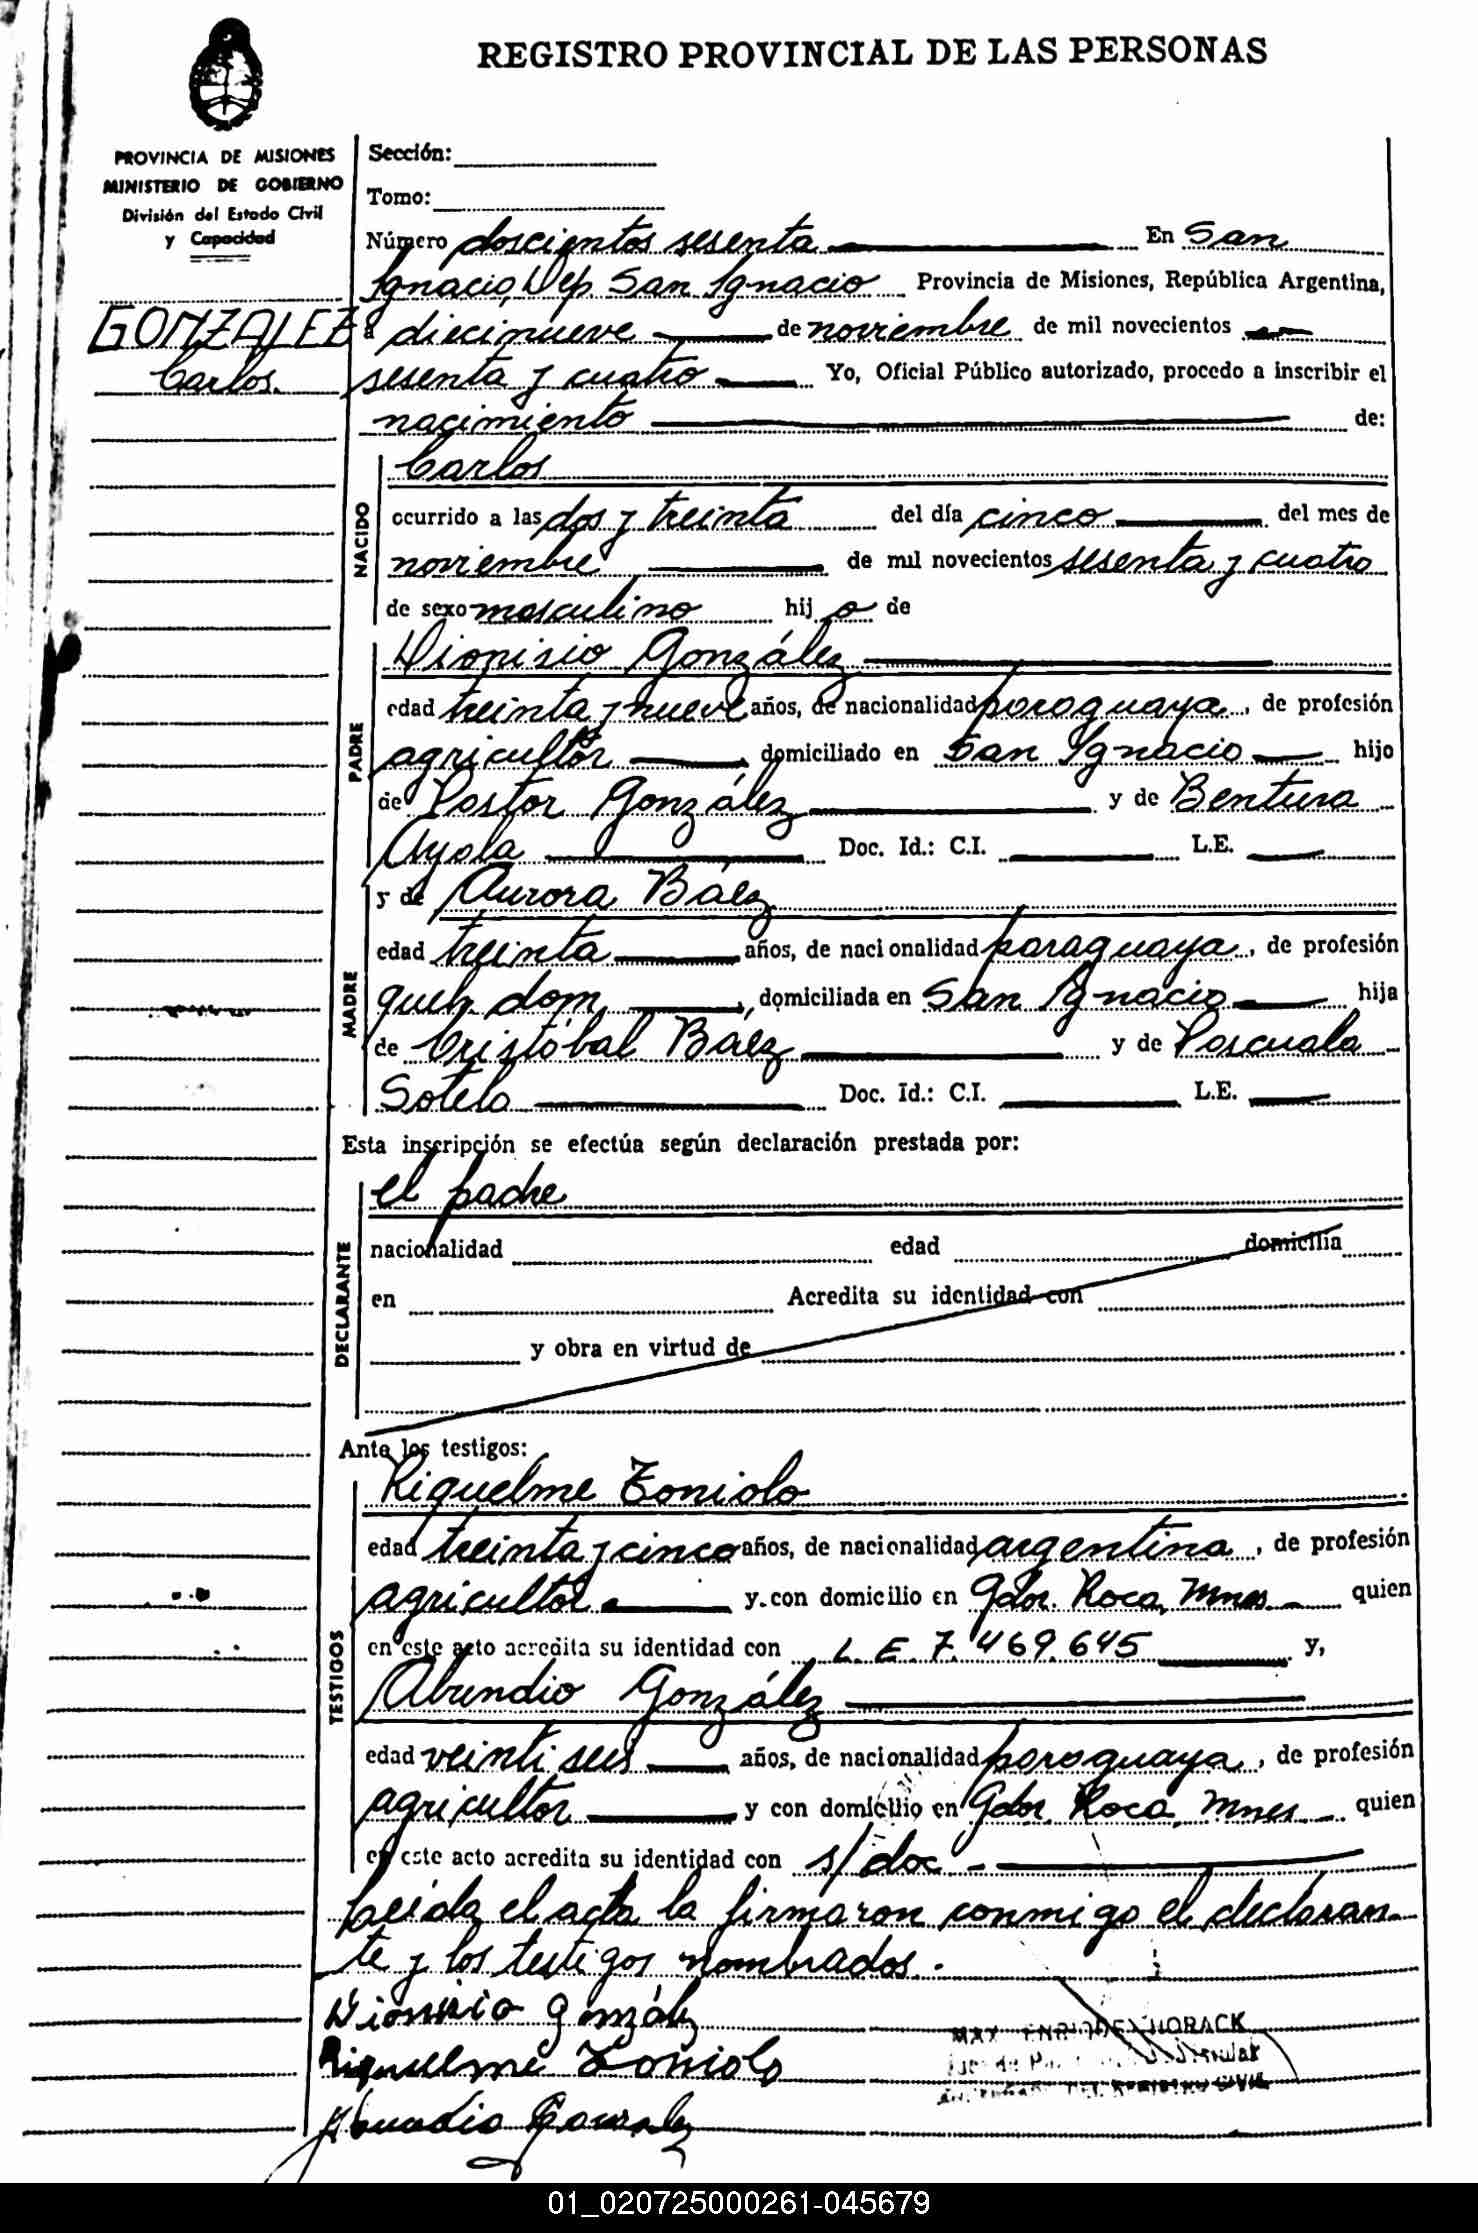 REGISTRO PROVINCIAL DE LAS PERSONAS
PROVINCIA DE MISIONES
MINISTERIO DE GOBIERNO
División del Estado Civil
y Capacidad
GONZALEZ
Carlos.
Sección:
Tomo:
Número doscientos sesenta En San
Ignacio, Dep. San Ignacio Provincia de Misiones, República Argentina,
a diecinueve de noviembre de mil novecientos
sesenta y cuatro Yo, Oficial Público autorizado, procedo a inscribir el
nacimiento de:
NACIDO
Carlos
ocurrido a las dos y treinta del día cinco del mes de
noviembre de mil novecientos sesenta y cuatro
de sexo masculino hij o de
PADRE
Dionisio González
edad treinta y nueve años, de nacionalidad paraguaya, de profesión
agricultor, domiciliado en San Ignacio hijo
de Pastor González y de Bentura
Ayala Doc. Id.: C.I. L.E.
MADRE
y de Aurora Báez
edad treinta años, de nacionalidad paraguaya, de profesión
queh. dom, domiciliada en San Ignacio hija
de Cristóbal Báez y de Pascuala
Sotelo Doc. Id.: C.I. L.E.
Esta inscripción se efectúa según declaración prestada por:
DECLARANTE
el padre
nacionalidad edad domicilia
en Acredita su identidad con
y obra en virtud de
Ante los testigos:
TESTIGOS
Riquelme Toniolo
edad treinta y cinco años, de nacionalidad argentina, de profesión
agricultor y con domicilio en Gdor. Roca, Mnes. quien
en este acto acredita su identidad con L.E. 7.469.645 y,
Abundio González
edad veintiseis años, de nacionalidad paraguaya, de profesión
agricultor y con domicilio en Gdor. Roca, Mnes. quien
en este acto acredita su identidad con s/doc
Leída el acta la firmaron conmigo el declaran-
te y los testigos nombrados.
Dionisio González
Riquelme Toniolo
Abundio Gonzalez
MAX ENRIQUE HORACK
DEL REGISTRO CIVIL
01_020725000261-045679